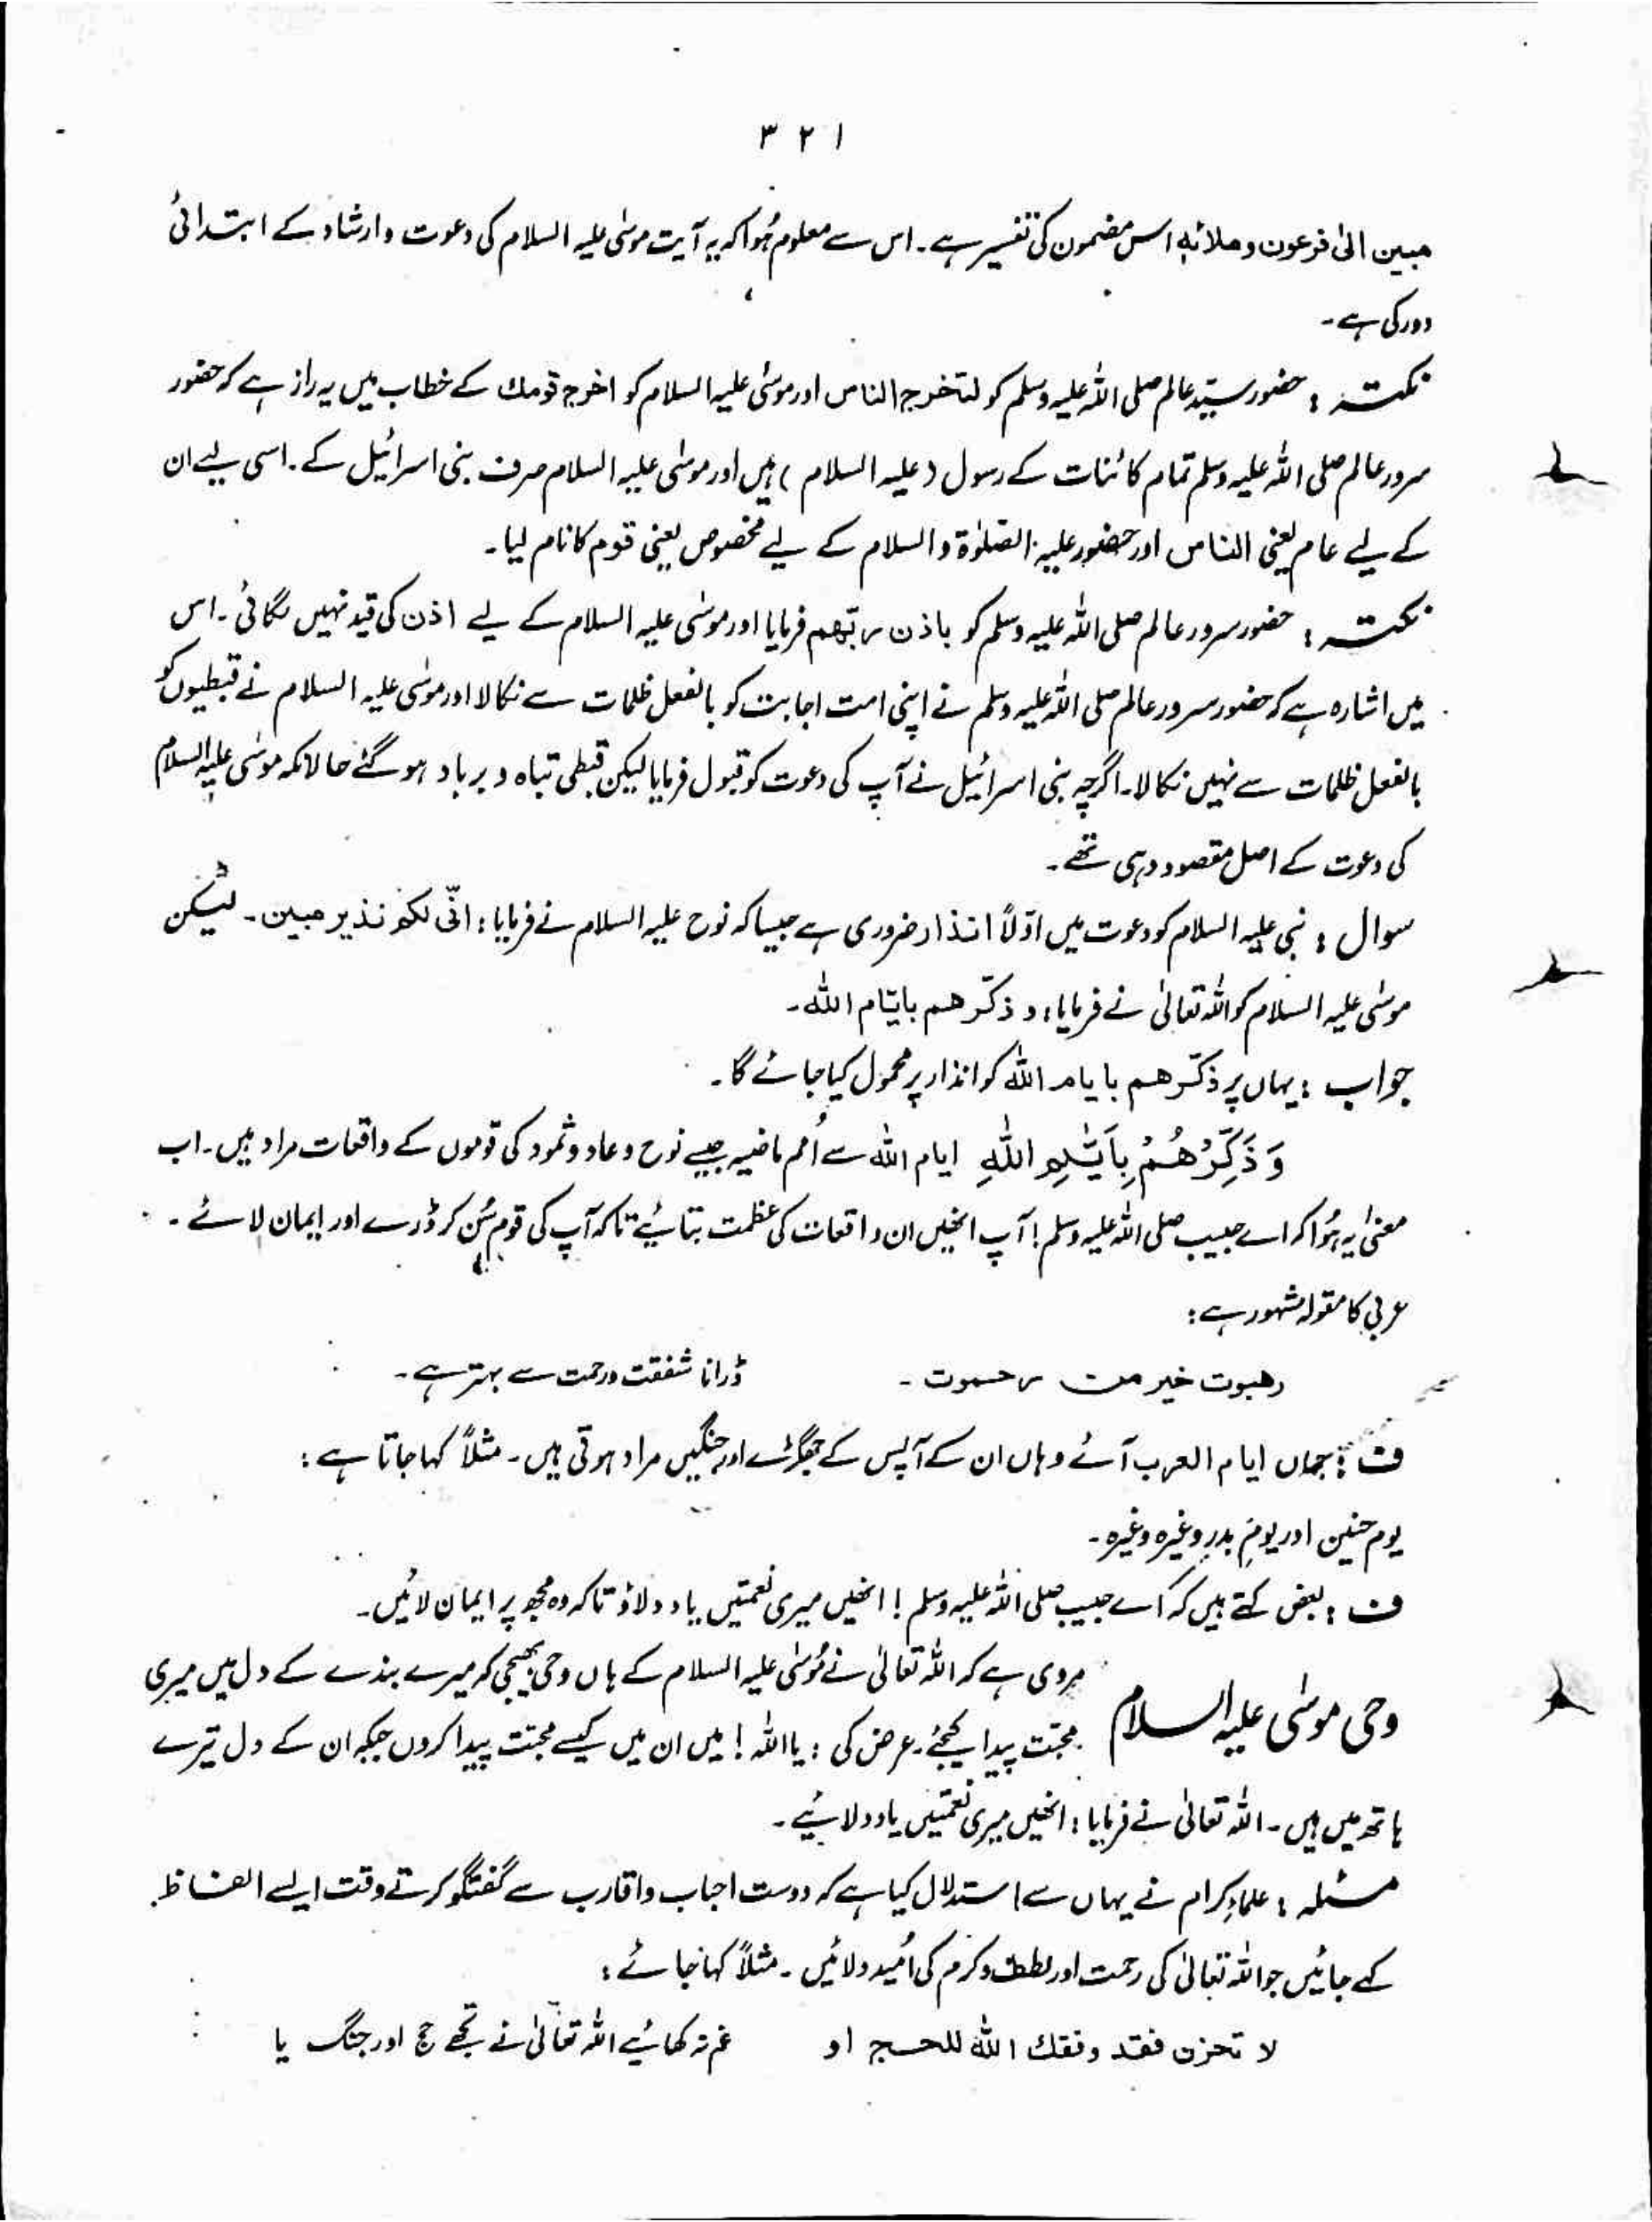 ۳۲۱
مبین الیٰ فرعون وملائہٖ اس مضمون کی تفسیر ہے۔ اس سے معلوم ہُوا کہ یہ آیت موسٰی علیہ السلام کی دعوت وارشاد کے ابتدائی
دور کی ہے۔
نکتہ : حضور سیّدِ عالم صلی اللہ علیہ وسلم کو لتخرج الناس اور موسٰی علیہ السلام کو اخرج قومك کے خطاب میں یہ راز ہے کہ حضور
سرورِ عالم صلی اللہ علیہ وسلم تمام کائنات کے رسول (علیہ السلام) ہیں اور موسٰی علیہ السلام صرف بنی اسرائیل کے۔ اسی لیے ان
کے لیے عام یعنی الناس اور حضور علیہ الصلوٰۃ والسلام کے لیے مخصوص یعنی قوم کا نام لیا۔
نکتہ : حضور سرور عالم صلی اللہ علیہ وسلم کو باذن ربّھم فرمایا اور موسٰی علیہ السلام کے لیے اذن کی قید نہیں لگائی۔ اس
میں اشارہ ہے کہ حضور سرور عالم صلی اللہ علیہ وسلم نے اپنی امت اجابت کو بالفعل ظلمات سے نکالا اور موسٰی علیہ السلام نے قبطیوں کو
بالفعل ظلمات سے نہیں نکالا۔ اگرچہ بنی اسرائیل نے آپ کی دعوت کو قبول فرمایا لیکن قبطی تباہ و برباد ہو گئے حالانکہ موسٰی علیہ السلام
کی دعوت کے اصل مقصود وہی تھے۔
سوال : نبی علیہ السلام کو دعوت میں اوّلاً انذار ضروری ہے جیسا کہ نوح علیہ السلام نے فرمایا : انّی لکم نذیر مبین۔ لیکن
موسٰی علیہ السلام کو اللہ تعالیٰ نے فرمایا : و ذکّرھم بایّام اللہ۔
جواب : یہاں پر ذکّرھم بایام اللہ کو انذار پر محمول کیا جائے گا۔
وَ ذَکِّرْھُمْ بِاَیّٰىمِ اللّٰہِ ایام اللہ سے اُمم ماضیہ جیسے نوح و عاد و ثمود کی قوموں کے واقعات مراد ہیں۔ اب
معنیٰ یہ ہُوا کہ اے حبیب صلی اللہ علیہ وسلم! آپ انھیں ان واقعات کی عظمت بتائیے تاکہ آپ کی قوم سُن کر ڈرے اور ایمان لائے۔
عربی کا مقولہ مشہور ہے :
رھبوت خیر من رحموت ۔ ڈرانا شفقت ورحمت سے بہتر ہے۔
ف : جہاں ایام العرب آئے وہاں ان کے آپس کے جھگڑے اور جنگیں مراد ہوتی ہیں۔ مثلاً کہا جاتا ہے :
یوم حنین اور یومِ بدر وغیرہ وغیرہ۔
ف : بعض کہتے ہیں کہ اے حبیب صلی اللہ علیہ وسلم! انھیں میری نعمتیں یاد دلاؤ تاکہ وہ مجھ پر ایمان لائیں۔
وحی موسٰی علیہ السلام مروی ہے کہ اللہ تعالیٰ نے مُوسٰی علیہ السلام کے ہاں وحی بھیجی کہ میرے بندے کے دل میں میری
محبت پیدا کیجئے۔ عرض کی : یااللہ! میں ان میں کیسے محبت پیدا کروں جبکہ ان کے دل تیرے
ہاتھ میں ہیں۔ اللہ تعالیٰ نے فرمایا : انھیں میری نعمتیں یاد دلائیے۔
مسئلہ : علماءِ کرام نے یہاں سے استدلال کیا ہے کہ دوست احباب واقارب سے گفتگو کرتے وقت ایسے الفاظ
کہے جائیں جو اللہ تعالیٰ کی رحمت اور لطف وکرم کی اُمید دلائیں۔ مثلاً کہا جائے :
لا تحزن فقد وفقك اللہ للحج او غم نہ کھائیے اللہ تعالیٰ نے تجھے حج اور جنگ یا